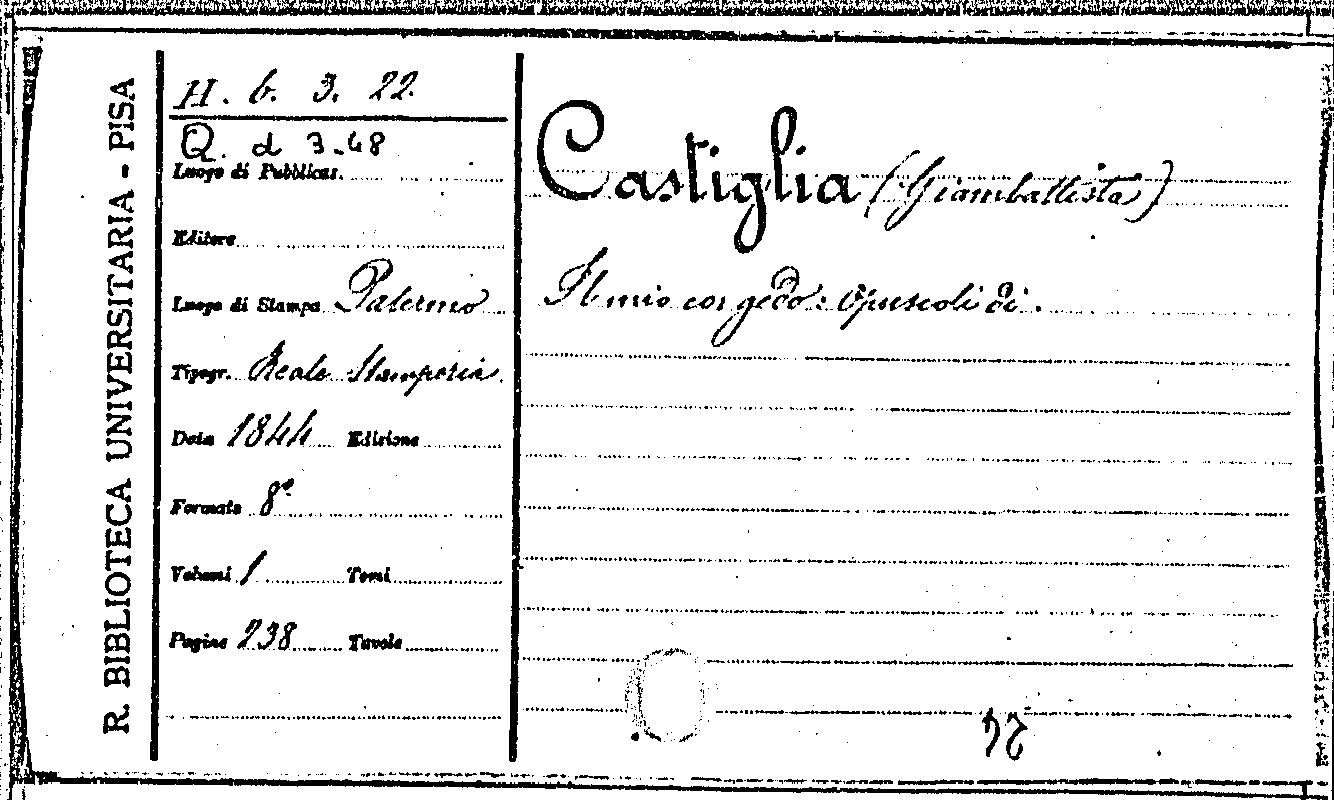 R. BIBLIOTECA UNIVERSITARIA - PISA
H. b. 3. 22.
Q. d 3-48
Luogo di Pubblicaz.
Editore
Luogo di Stampa Palermo
Tipogr. Reale Stamperia
Data 1844 Edizione
Formato 8°
Volumi 1 Tomi
Pagine 238 Tavole
Castiglia (Giambattista)
Il mio congedo: Opuscoli di.